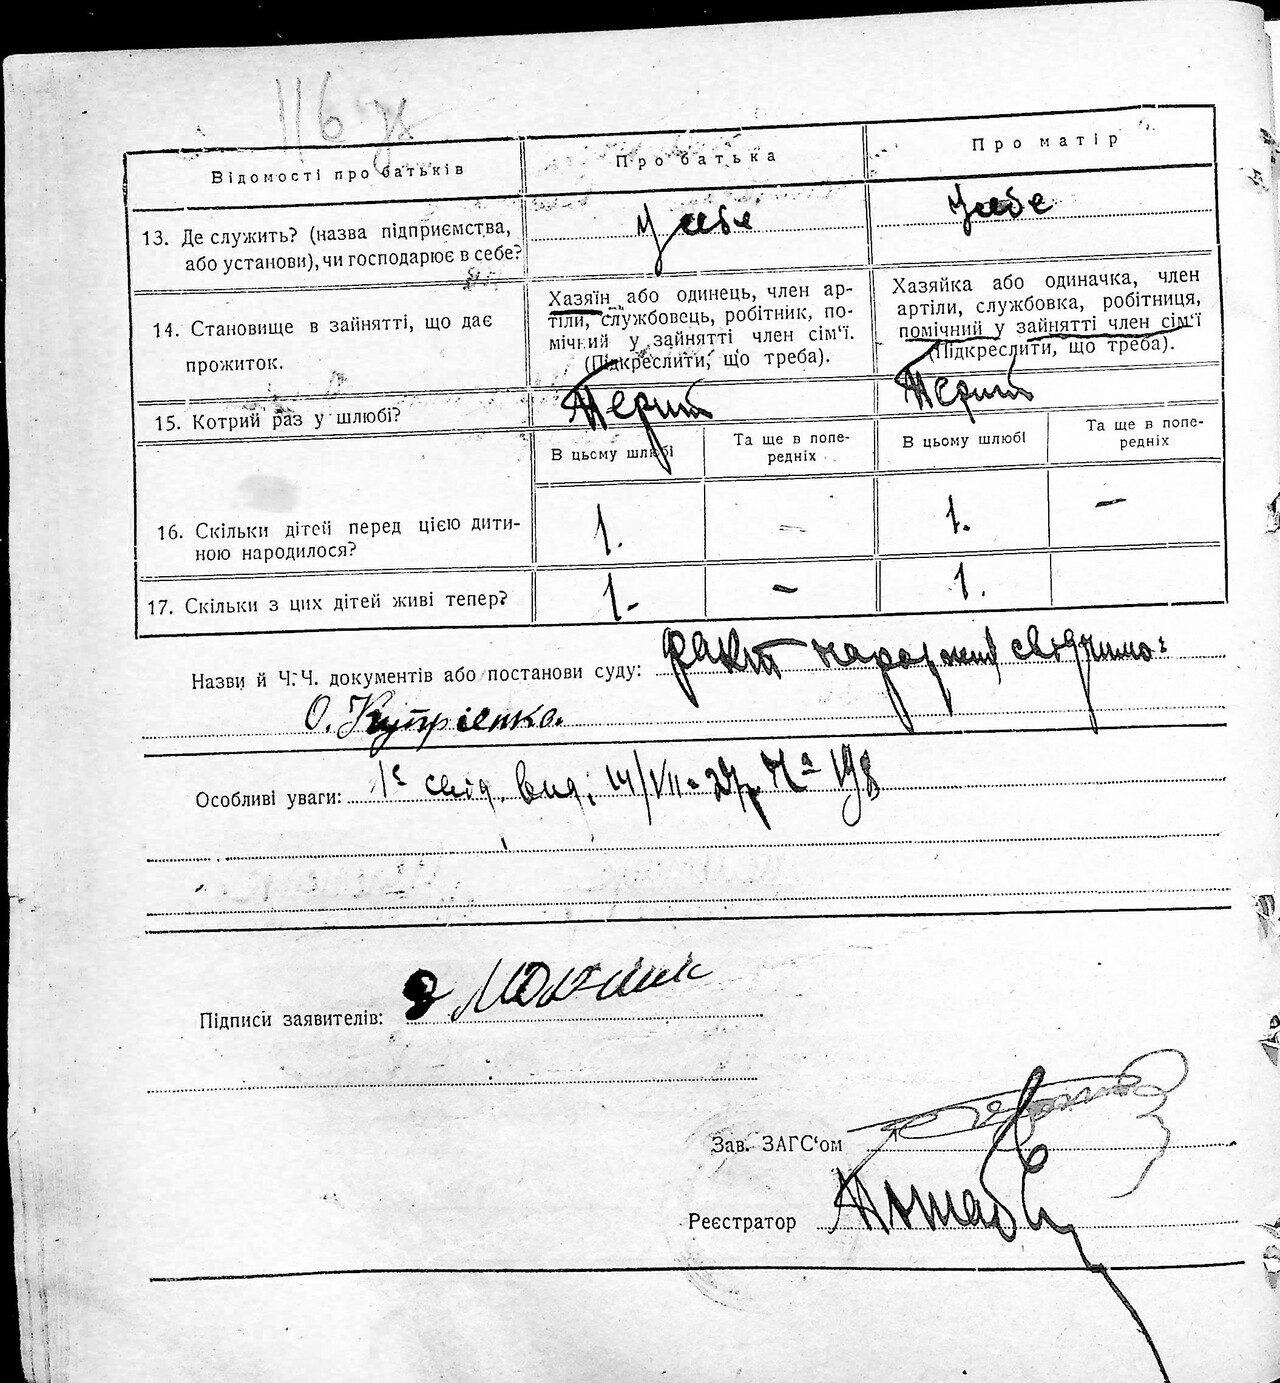 116 зв
Відомості про батьків
Про батька
Про матір
13. Де служить? (назва підприємства, або установи), чи господарює в себе?
У себе
У себе
14. Становище в зайнятті, що дає прожиток.
Хазяїн або одинець, член ар-
тіли, службовець, робітник, по-
мічний у зайнятті член сім‘ї.
(Підкреслити, що треба).
Хазяйка або одиначка, член
артіли, службовка, робітниця,
помічний у зайнятті член сім‘ї
(Підкреслити, що треба).
15. Котрий раз у шлюбі?
Перший
Перший
В цьому шлюбі
Та ще в попе-
редніх
В цьому шлюбі
Та ще в попе-
редніх
16. Скільки дітей перед цією дити-
ною народилося?
1.
-
1.
-
17. Скільки з цих дітей живі тепер?
1.
-
1.
Назви й Ч.Ч. документів або постанови суду: факт народження свідчимо:
О. Купрієнко.
Особливі уваги: свід. вид. 14/VII-27р. № 198
Підписи заявителів:
Зав. ЗАГС‘ом
Реєстратор